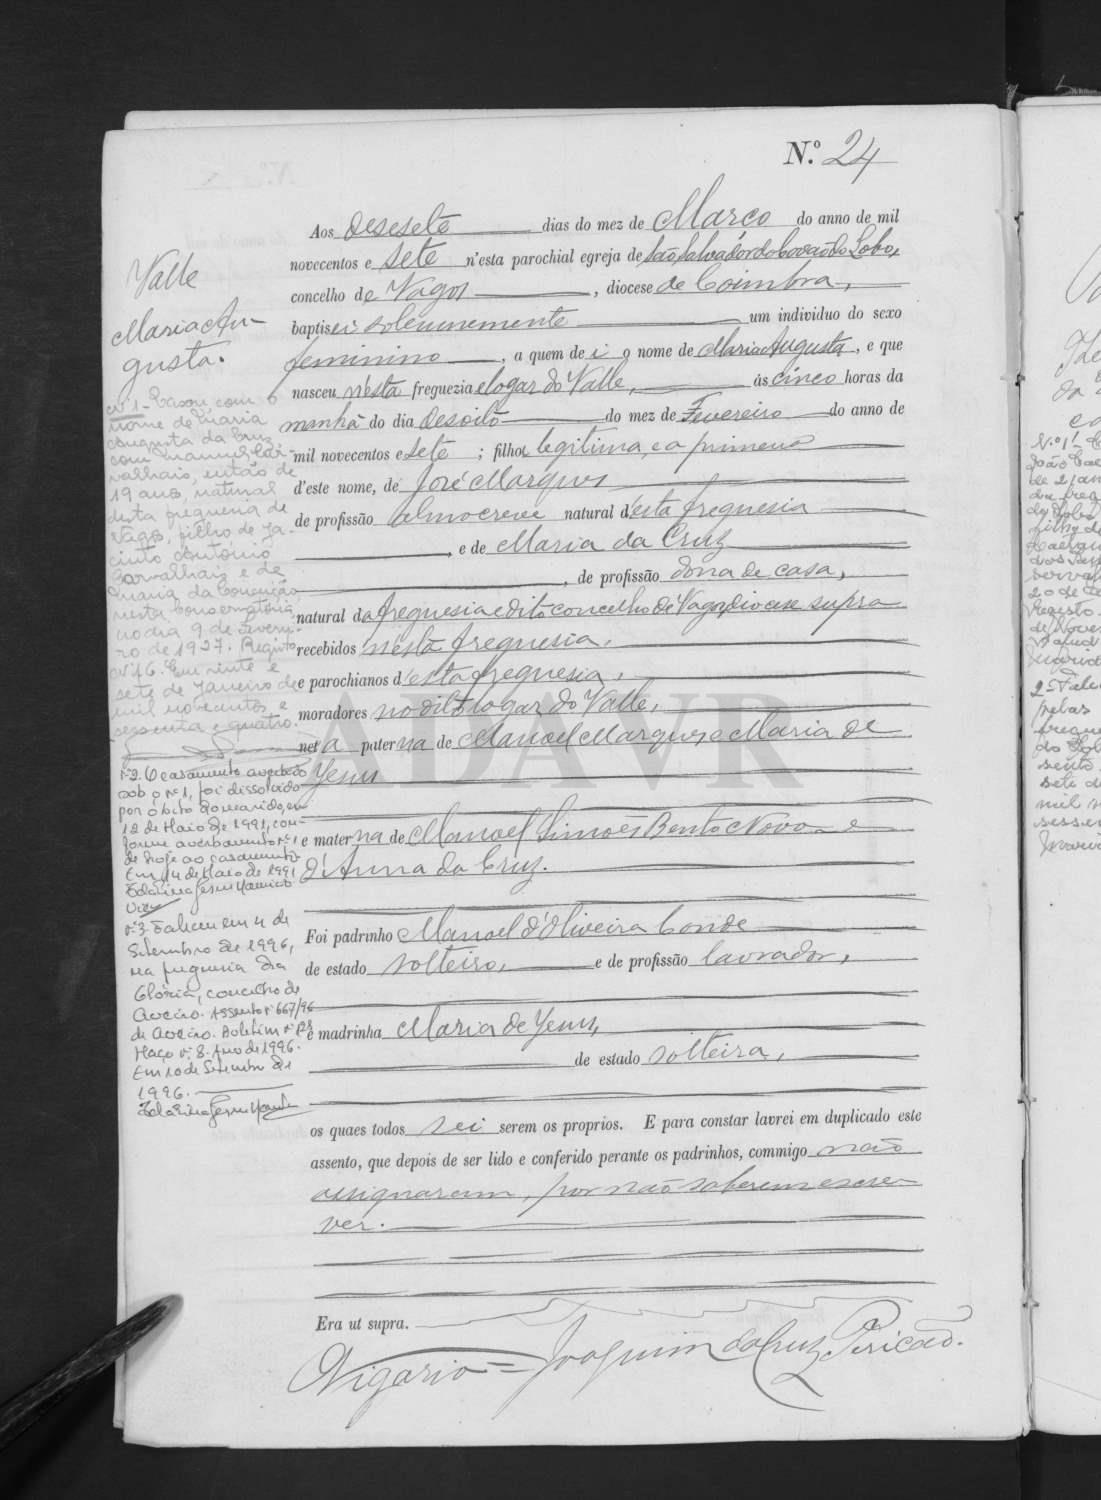 N.º 24
Valle
Maria Au-
gusta.
Aos desesete dias do mez de Março do anno de mil
novecentos e sete n'esta parochial egreja de São Salvador do Covão do Lobo,
concelho de Vagos, diocese de Coimbra,
baptisei solemnemente um individuo do sexo
feminino, a quem dei o nome de Maria Augusta, e que
nasceu n'esta freguezia e logar do Valle, ás cinco horas da
manhã do dia desoito do mez de Fevereiro do anno de
mil novecentos e sete; filha legitima, e a primeira
d'este nome, de José Marques
de profissão almocreve natural d'esta freguesia
, e de Maria da Cruz
, de profissão dona de casa,
natural da freguesia e dito concelho de Vagos, diocese supra
recebidos n'esta freguesia,
e parochianos d'esta freguesia,
moradores no dito logar do Valle,
neta paterna de Manoel Marques e Maria de
Jesus
e materna de Manoel Simões Bento Novo e
d'Anna da Cruz.
Foi padrinho Manoel d'Oliveira Conde
de estado solteiro, e de profissão lavrador,
e madrinha Maria de Jesus,
de estado solteira,
os quaes todos sei serem os proprios. E para constar lavrei em duplicado este
assento, que depois de ser lido e conferido perante os padrinhos, commigo não
assignaram, por não saberem escre-
ver.
Era ut supra.
O Vigario = Joaquim da Cruz Pericão.
Nº 1 - Casou com o
nome de Maria
Augusta da Cruz
com Manuel Car-
valhais, então de
19 anos, natural
desta freguesia de
Vagos, filho de Ja-
cinto António
Carvalhais e de
Maria da Conceição
nesta Conservatória
no dia 9 de Feverei-
ro de 1927. Registo
nº 16. Em vinte e
sete de Janeiro de
mil novecentos e
sessenta e quatro.
Nº 2. O casamento averbado
sob o nº 1, foi dissolvido
por óbito do marido, em
12 de Maio de 1991, con-
forme averbamento nº 1
de hoje ao casamento
Em 14 de Maio de 1991
nº 3. Faleceu em 4 de
Setembro de 1996,
na freguesia da
Glória, concelho de
Aveiro. Assento nº 667/96
de Aveiro. Boletim nº 128
Maço nº 8. Ano de 1996.
Em 10 de Setembro de
1996.
ADAVR